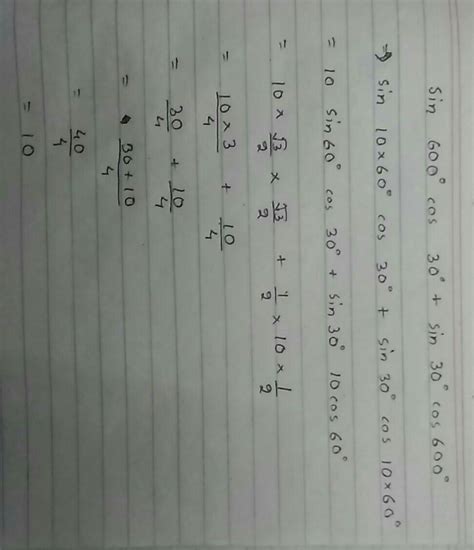 sin 600° cos 30° + sin 30° cos 600°
⇒ sin 10×60° cos 30° + sin 30° cos 10×60°
= 10 sin 60° cos 30° + sin 30° 10 cos 60°
= 10 × √3/2 × √3/2 + 1/2 × 10 × 1/2
= 10 × 3/4 + 10/4
= 30/4 + 10/4
= 30 + 10/4
= 40/4
= 10